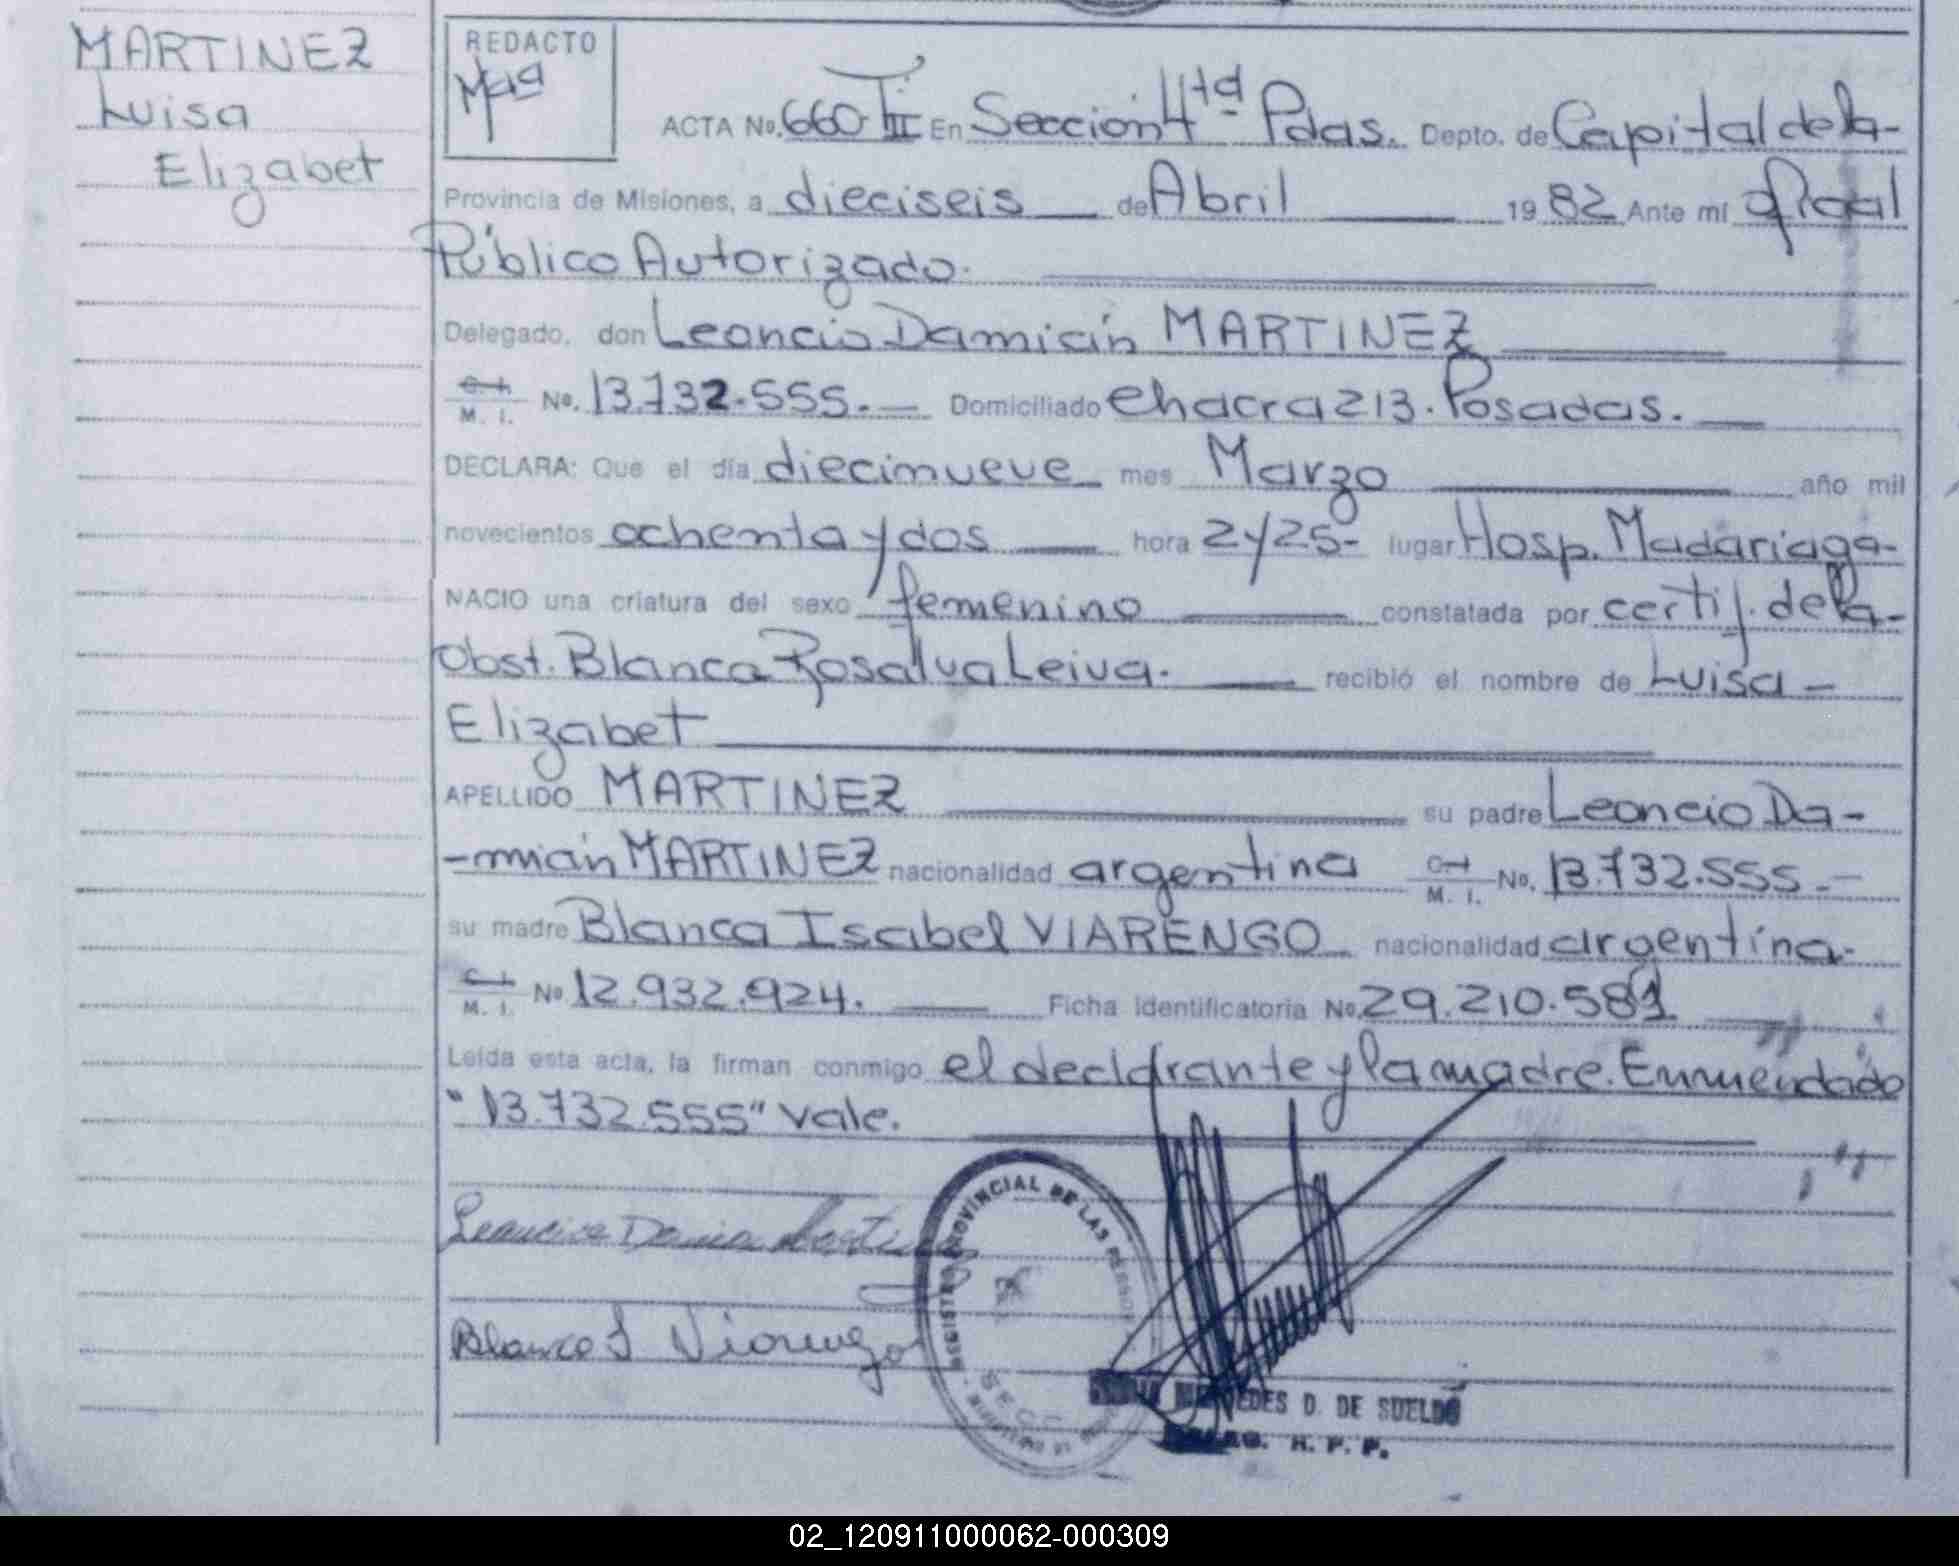 MARTINEZ
Luisa
Elizabet
REDACTO
ACTA No. 660 T III En Sección 4ta Pdas. Depto. de Capital de la-
Provincia de Misiones, a dieciseis de Abril 1982 Ante mí oficial
Público Autorizado.
Delegado, don Leoncio Damián MARTINEZ
C. I. M. I. No. 13.732.555.- Domiciliado chacra 213. Posadas.
DECLARA: Que el día diecinueve mes Marzo año mil
novecientos ochenta y dos hora 2 y 25- lugar Hosp. Madariaga-
NACIO una criatura del sexo femenino constatada por certif. de la-
Obst. Blanca Rosalva Leiva. recibió el nombre de Luisa -
Elizabet
APELLIDO MARTINEZ su padre Leoncio Da-
-mián MARTINEZ nacionalidad argentina C. I. M. I. No. 13.732.555.-
su madre Blanca Isabel VIARENGO nacionalidad argentina.
C. I. M. I. No 12.932.924. Ficha Identificatoria No. 29.210.581
Leída esta acta, la firman conmigo el declarante y la madre. Enmendado
"13.732.555" vale.
REGISTRO PROVINCIAL DE LAS
Blanca I Viarengo
MERCEDES D. DE SUELDO